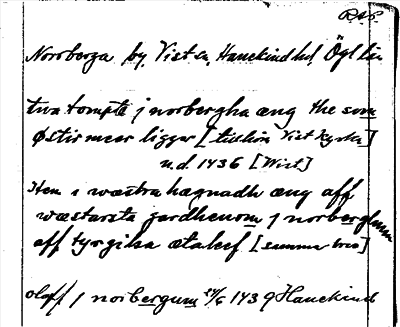 RAP
Norrberga by, Vist sn, Hanekind hd, Ögl län
twa tompte j norbergha æng the som
østir meer liggr [tillhör Vist kyrka]
u.d. 1436 [Wist]
Item i wæstra hægnadh æng aff
wæstarsta jordhenom j norberghum
aff tyrgilsa ætaleef [samma brev]
oloff j norbergum 24/6 1439 Hanekind